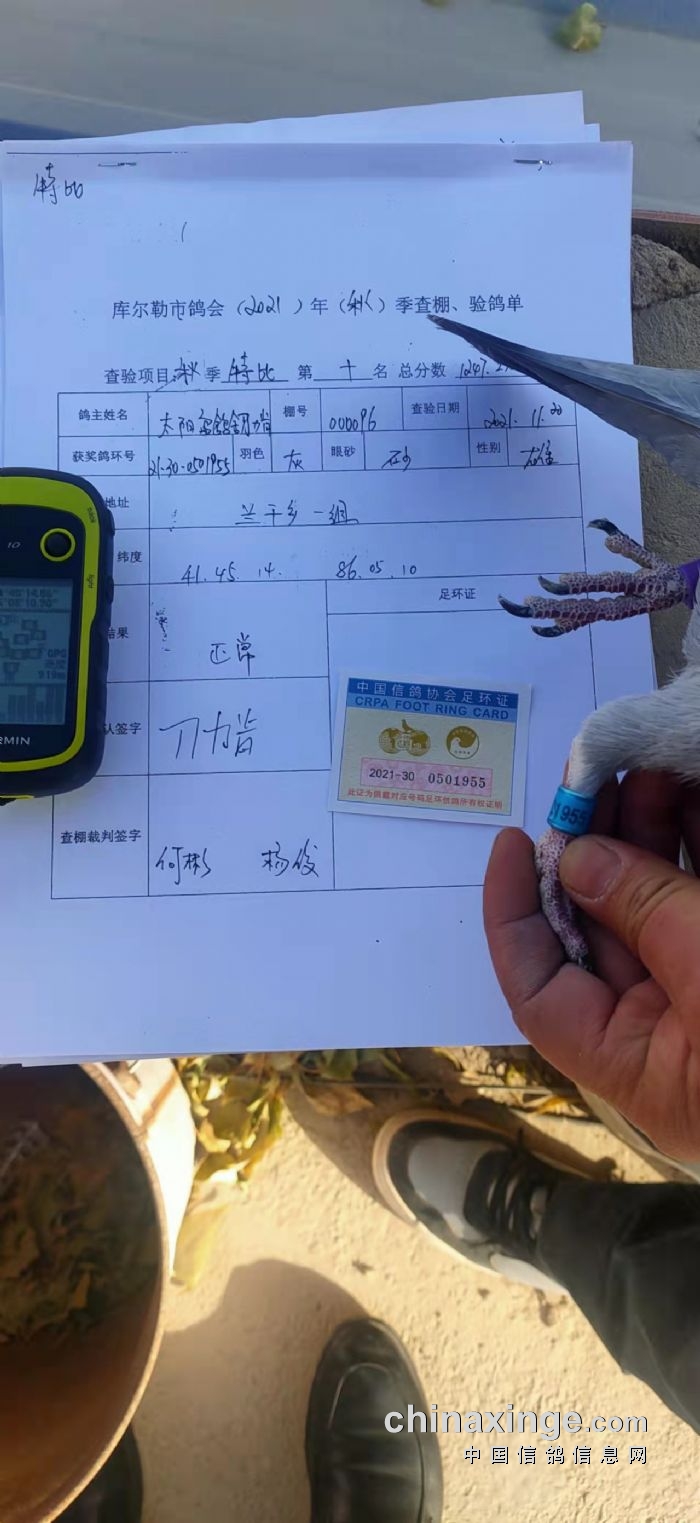 特比
库尔勒市鸽会（2021）年（秋）季查棚、验鸽单
查验项目：秋季 特比 第 十 名 总分数 1247.
鸽主姓名 太阳 棚号 000096 查验日期 2021.11.20
获奖鸽环号 21-30-0501955 羽色 灰 眼砂 砂 性别 雄
地址 兰干乡一组
纬度 41.45.14. 86.05.10
结果 正常 足环证
中国信鸽协会足环证
CRPA FOOT RING CARD
2021-30 0501955
此证为佩戴对应号码足环信鸽所有权证明
认签字
查棚裁判签字 何彬 杨俊
1955
back
light
10
GPS
RMIN
chinaxinge.com
中国信鸽信息网